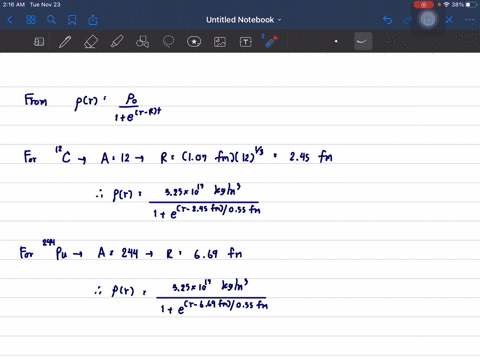 2:16 AM Tue Nov 23
38%
Untitled Notebook
From ρ(r) = ρ₀ / 1+e^(r-R)/t
For ¹²C → A = 12 → R = (1.07 fm)(12)^1/3 = 2.45 fm
∴ ρ(r) = 3.25×10¹⁷ kg/m³ / 1 + e^(r-2.45 fm)/0.55 fm
For ²⁴⁴Pu → A = 244 → R = 6.69 fm
∴ ρ(r) = 3.25×10¹⁷ kg/m³ / 1 + e^(r-6.69 fm)/0.55 fm